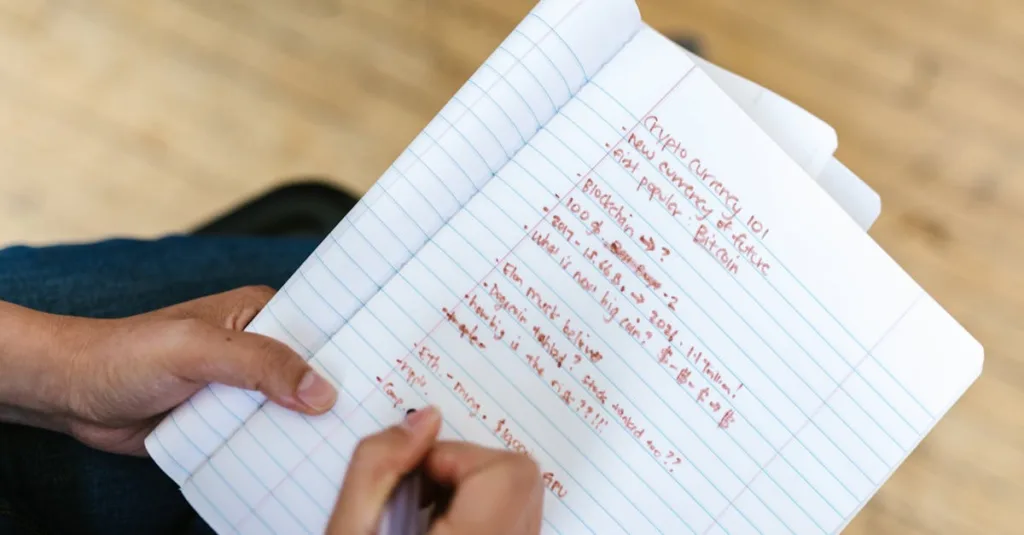 Crypto currency 101
- new currency of future
- first popular - Bitcoin
- Blockchain → ?
- 100 $ 2
- 2017 - 15.66B, → 2021. 1.17trillion!
- What is next big coin? $-$-$→$
- Elon musk believer
- Dogecoin ? stock market too??
- how big is the risk???!!!
- Eth. - mining - $1000 GPU
- ripple
- Comp